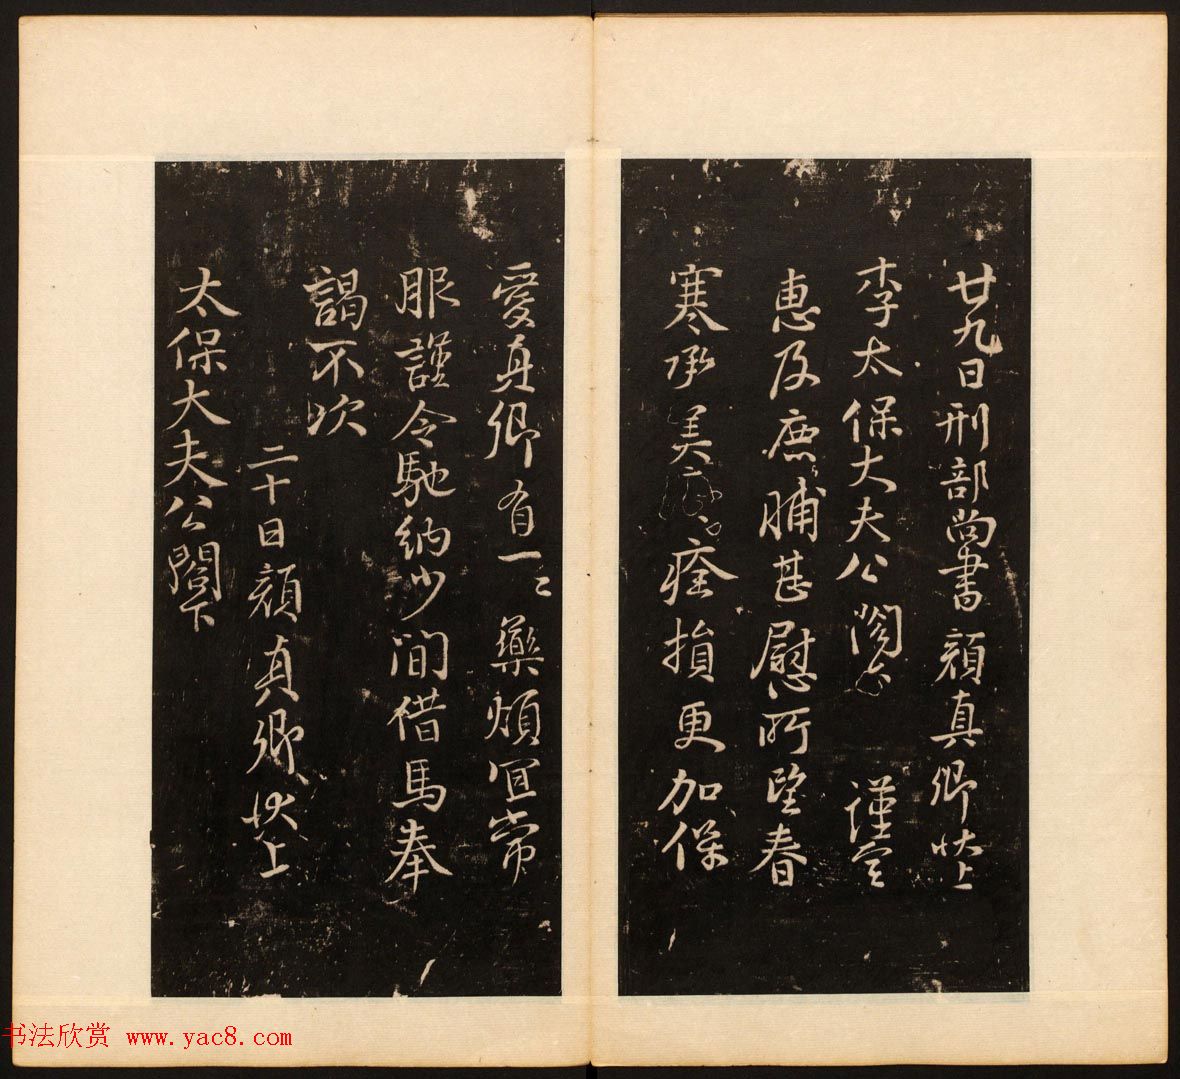 廿九日刑部尚書顏真卿狀上
李太保大夫公閤下 謹空
惠及鹿脯甚慰所望春
寒承美痊損更加保
愛真卿有一二藥頗宜常
服謹令馳納少間借馬奉
謁不次
二十日顏真卿狀上
太保大夫公閤下
书法欣赏 www.yac8.com